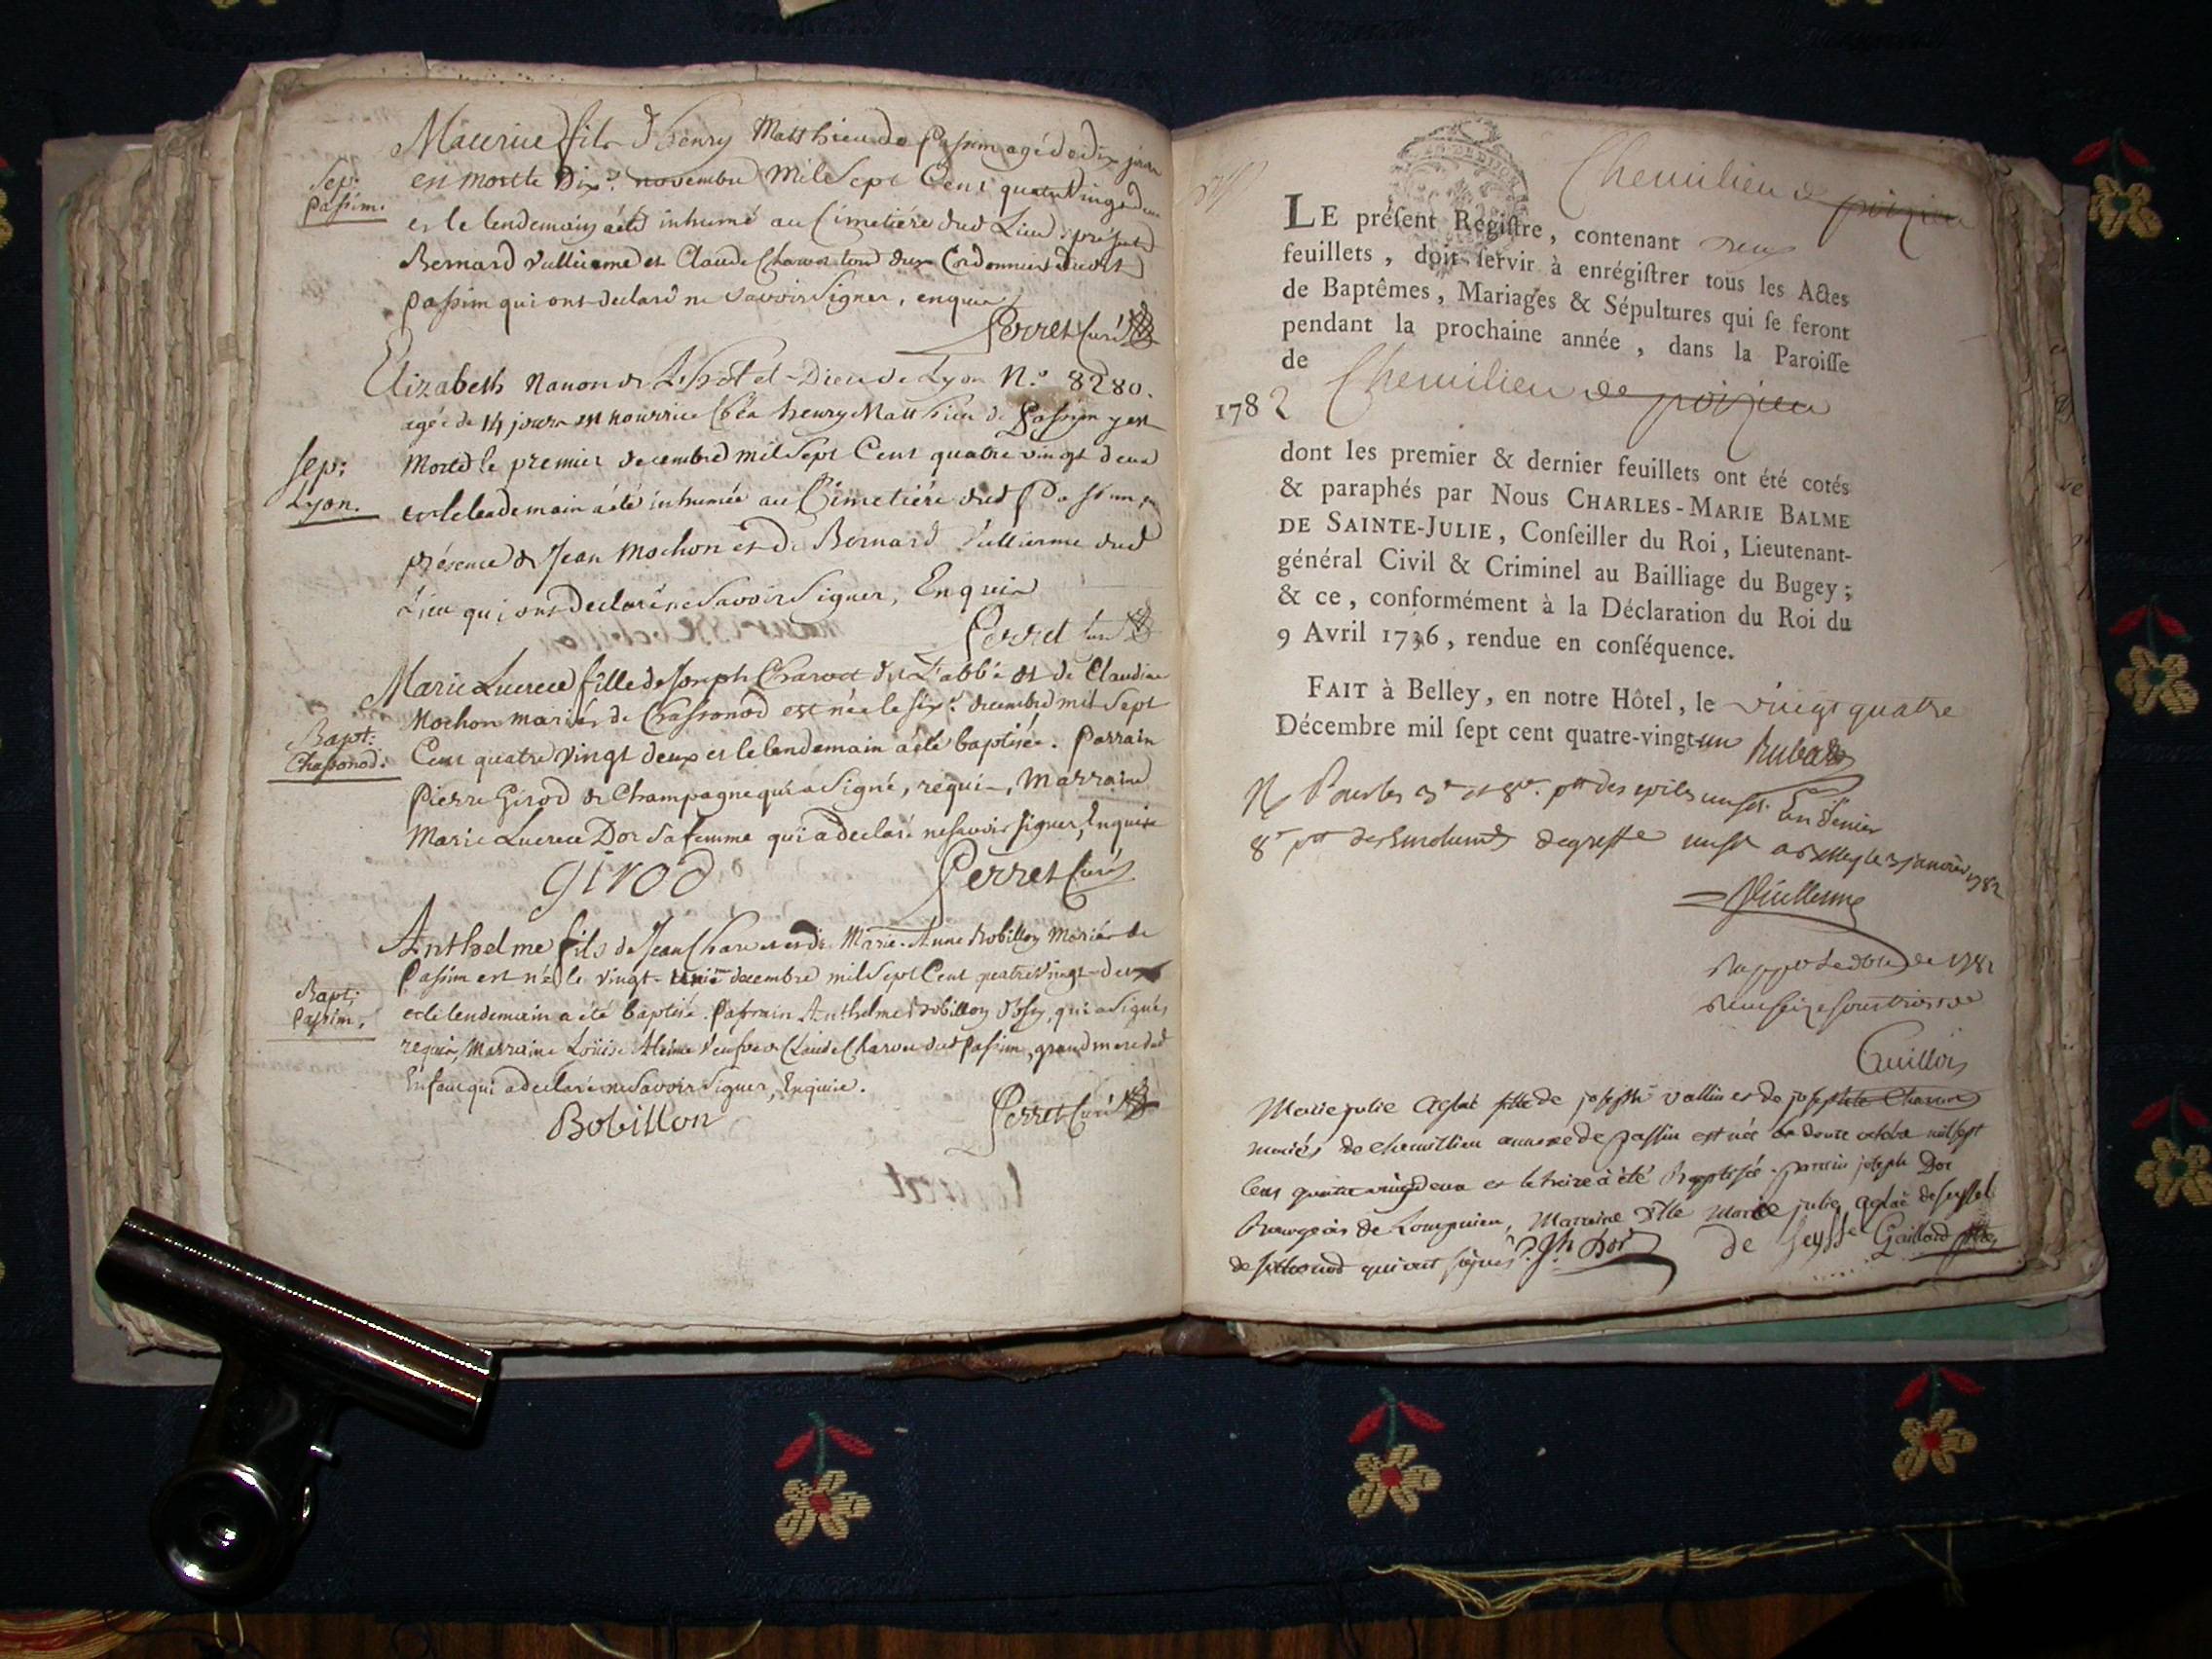 Maurice fils d'henry Matthieu de Passim agé de dix jours
Sep:
Passim.
est mort le Dix.e novembre mil Sept Cent quatre vingt deux
et le lendemain a été inhumé au Cimetiére dud Lieu, présents
Bernard Vullierme et Claude Charvet tous deux Cordonniers dudit
Passim qui ont declaré ne Savoir Signer, enquis
Perret Curé
Elizabeth Nanon de L'hôtel-Dieu de Lyon N.o 8280.
agée de 14 jours en nourrice chéz henry Matthieu de Passim y est
Sep:
Lyon.
Morte le premier decembre mil Sept Cent quatre vingt deux
et le lendemain a été inhumée au Cimetiére dud Passim en
présence de Jean Mochon et de Bernard Vullierme dud
Lieu qui ont Declaré ne Savoir Signer, Enquis
Perret Curé
Marie Lucrece fille de Joseph Charvet dit L'abbé et de Claudine
Mochon mariés de Chassonod est née le six.e decembre mil Sept
Bapt:
Chassonod:
Cent quatre vingt deux et le lendemain a été baptisée. Parrain
Pierre Girod de Champagne qui a Signé, requis, Marraine
Marie Lucrece Dor Sa femme qui a declaré ne Savoir Signer, Enquise
girod
Perret Curé
Anthelme fils de Jean Charvet et de Marie-Anne Bobillon Mariés de
Passim est né le vingt- decembre mil Sept Cent quatre Vingt-deux
Bapt:
Passim.
et le lendemain a été baptisé. Parrain Anthelme Bobillon, qui a Signé,
requis, Marraine Loüise veuve de Claude Charvet dud Passim, grand mere dud
Enfant qui a declaré ne Savoir Signer, Enquise.
Bobillon
Perret Curé
Chemilieu de poizieu
LE préſent Regiſtre, contenant deux
feuillets, doit ſervir à enrégiſtrer tous les Actes
de Baptêmes, Mariages & Sépultures qui ſe feront
pendant la prochaine année, dans la Paroiſſe
de Chemilieu de poizieu
1782
dont les premier & dernier feuillets ont été cotés
& paraphés par Nous CHARLES-MARIE BALME
DE SAINTE-JULIE, Conſeiller du Roi, Lieutenant-
général Civil & Criminel au Bailliage du Bugey;
& ce, conformément à la Déclaration du Roi du
9 Avril 1736, rendue en conſéquence.
FAIT à Belley, en notre Hôtel, le vingt quatre
Décembre mil ſept cent quatre-vingt-un
R Pour les 3e et 8e
a Belley le 3 janvier 1782
Vuillerme
de 1781
Marie julie Aglaé fille de joseph vallin et de josephte Charvet
mariés de chemillieu annexe de passin est née le douze octobre mil sept
Cent quatre vingt deux et le treize a été Baptisée. parrain joseph Dor
Bourgeois de Lompnieu, Marraine dlle marie julie aglaé de seyssel
de qui ont signés. Jh Dor de Seyssel Gaillard